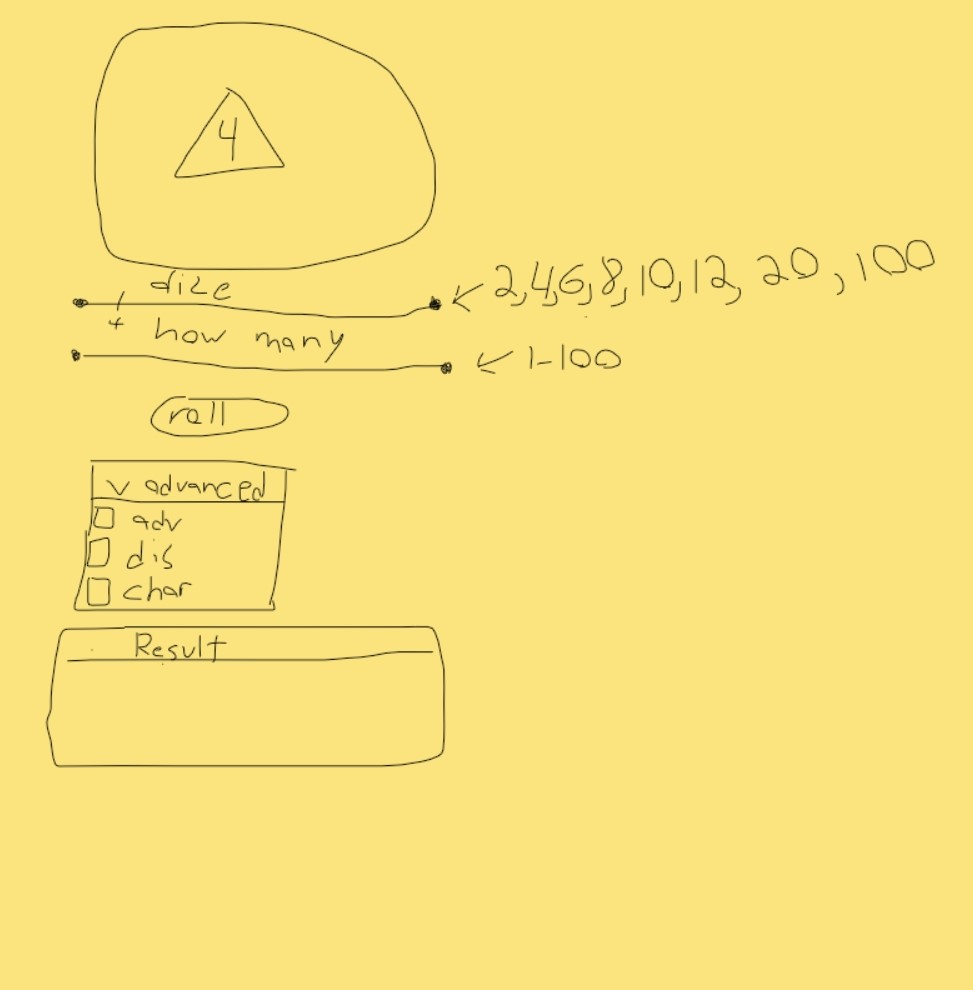 4
dize
2,4,6,8,10,12,20,100
how many
1-100
roll
v advanced
adv
dis
char
Result